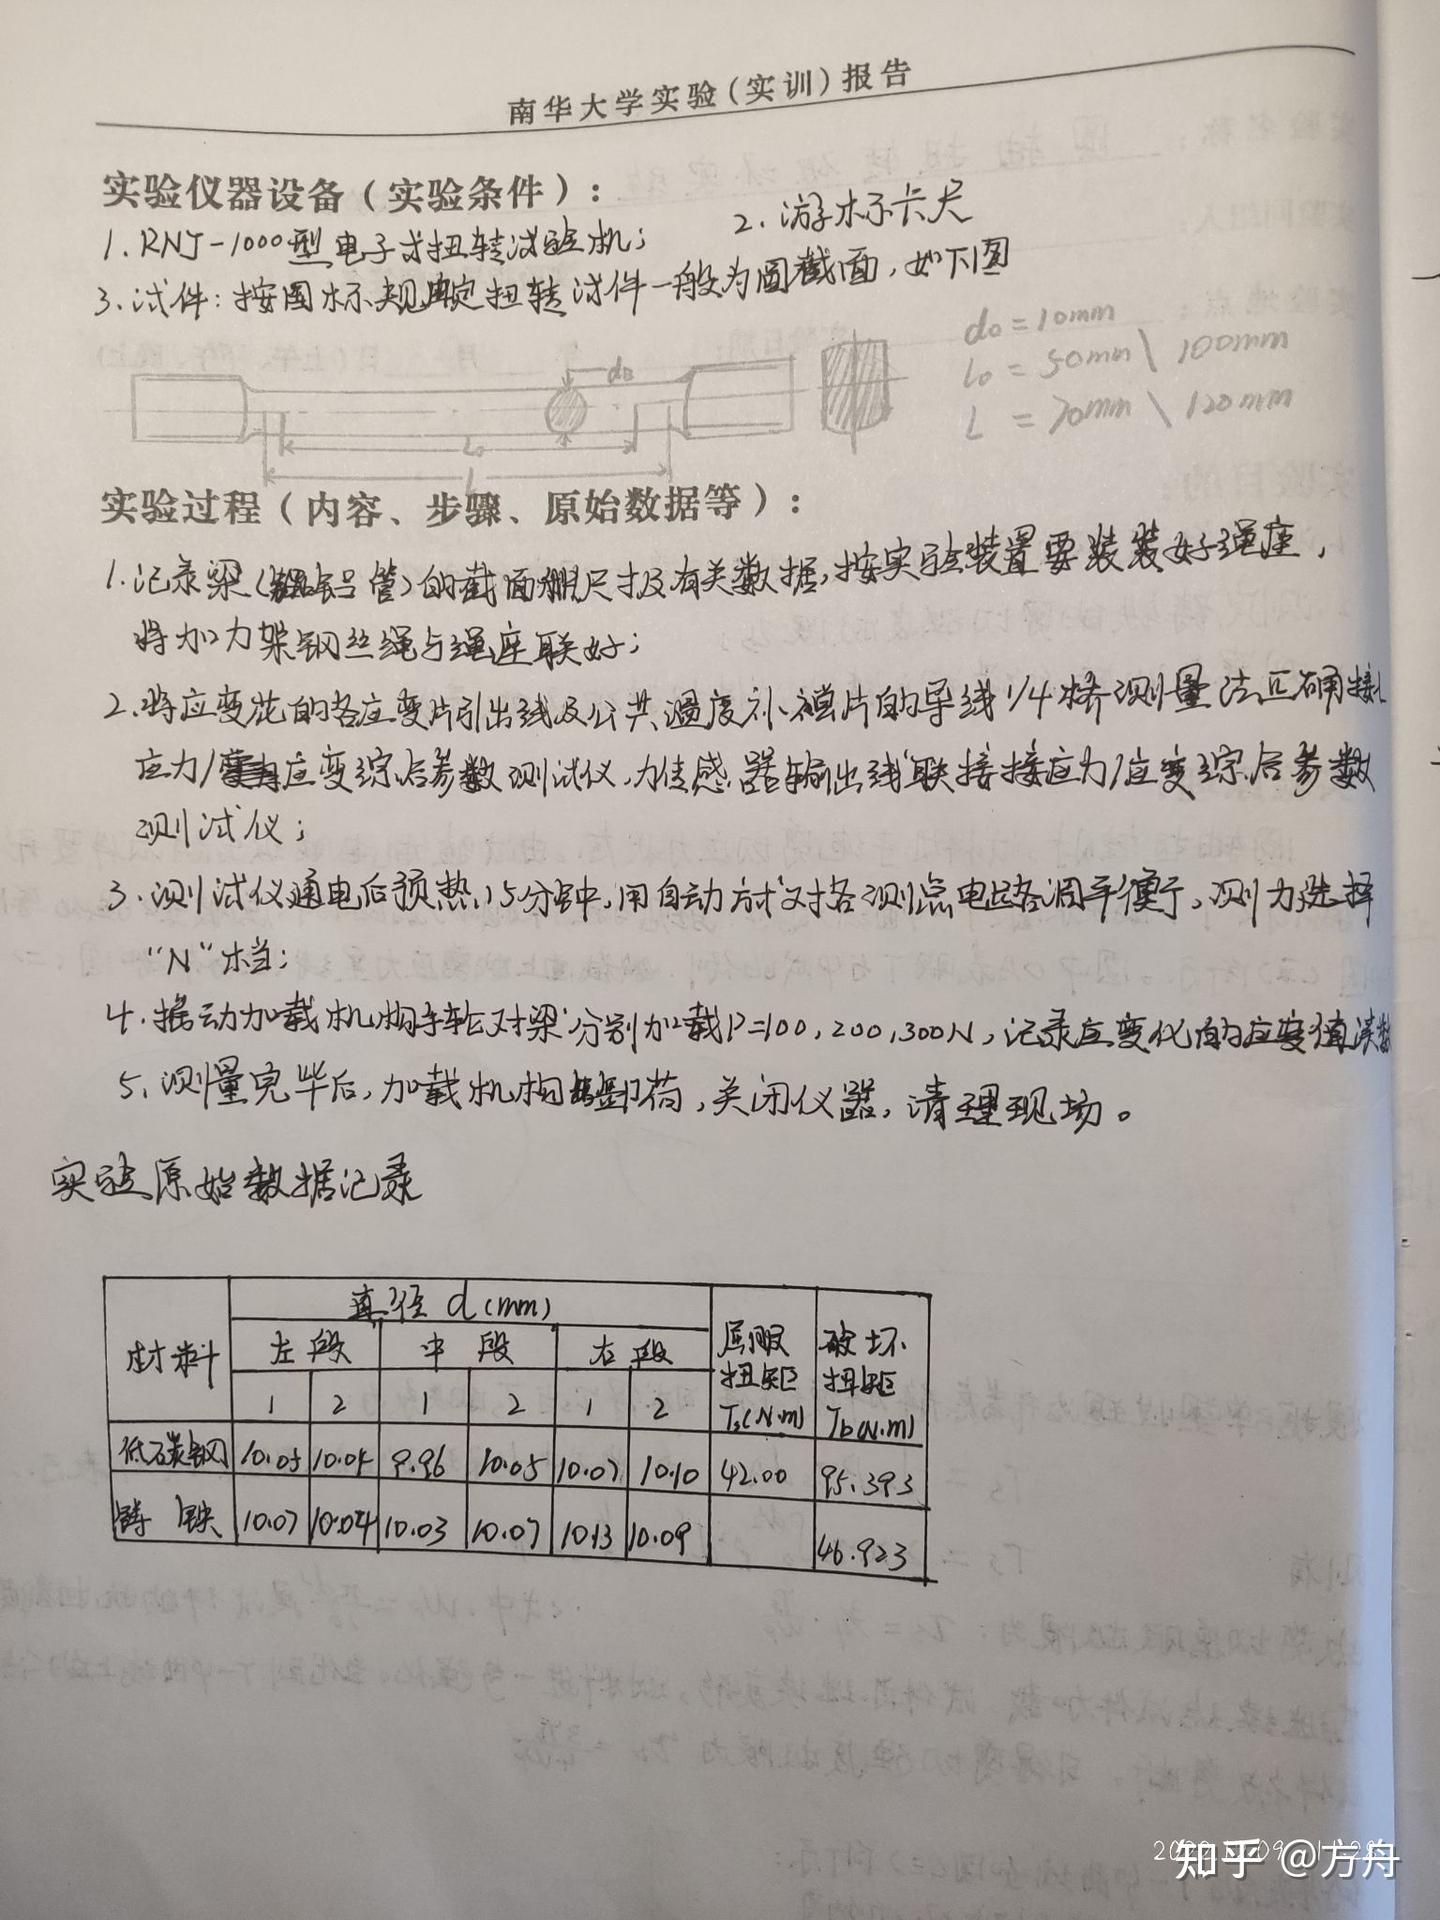 南华大学实验(实训)报告
实验仪器设备(实验条件):
1. RNJ-1000型电子式扭转试验机; 2. 游标卡尺
3. 试件: 按国标规定扭转试件一般为圆截面, 如下图
d0 = 10mm
l0 = 50mm \ 100mm
L = 70mm \ 120mm
d0
L0
L
实验过程(内容、步骤、原始数据等):
1. 记录梁(铝管)的截面尺寸及有关数据, 按实验装置要装装好绳座,
将加力架钢丝绳与绳座联好;
2. 将应变花的各应变片引出线及公共温度补偿片的导线1/4桥测量法正确接
应力/应变综合参数测试仪, 力传感器输出线联接接应力/应变综合参数
测试仪;
3. 测试仪通电后预热15分钟, 用自动方式对各测点电路调平衡, 测力选择
"N"档;
4. 摇动加载机构手轮对梁分别加载P=100, 200, 300N, 记录应变化的应变值读数
5. 测量完毕后, 加载机构卸荷, 关闭仪器, 清理现场。
实验原始数据记录
材料 直径 d(mm) 屈服扭矩 Ts(N·m) 破坏扭矩 Tb(N·m)
左段 中段 右段
1 2 1 2 1 2
低碳钢 10.05 10.04 9.96 10.05 10.07 10.10 42.00 95.393
铸铁 10.07 10.04 10.03 10.07 10.13 10.09 46.923
知乎 @方舟